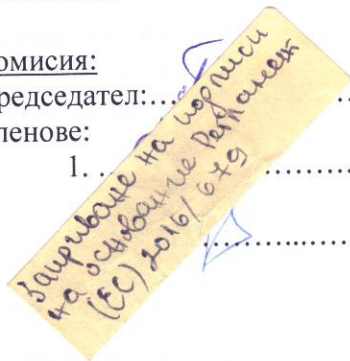 омисия:
редседател:...
ленове:
1. ...
Закриване на подписи
на основание Регламент
(ЕС) 2016/679